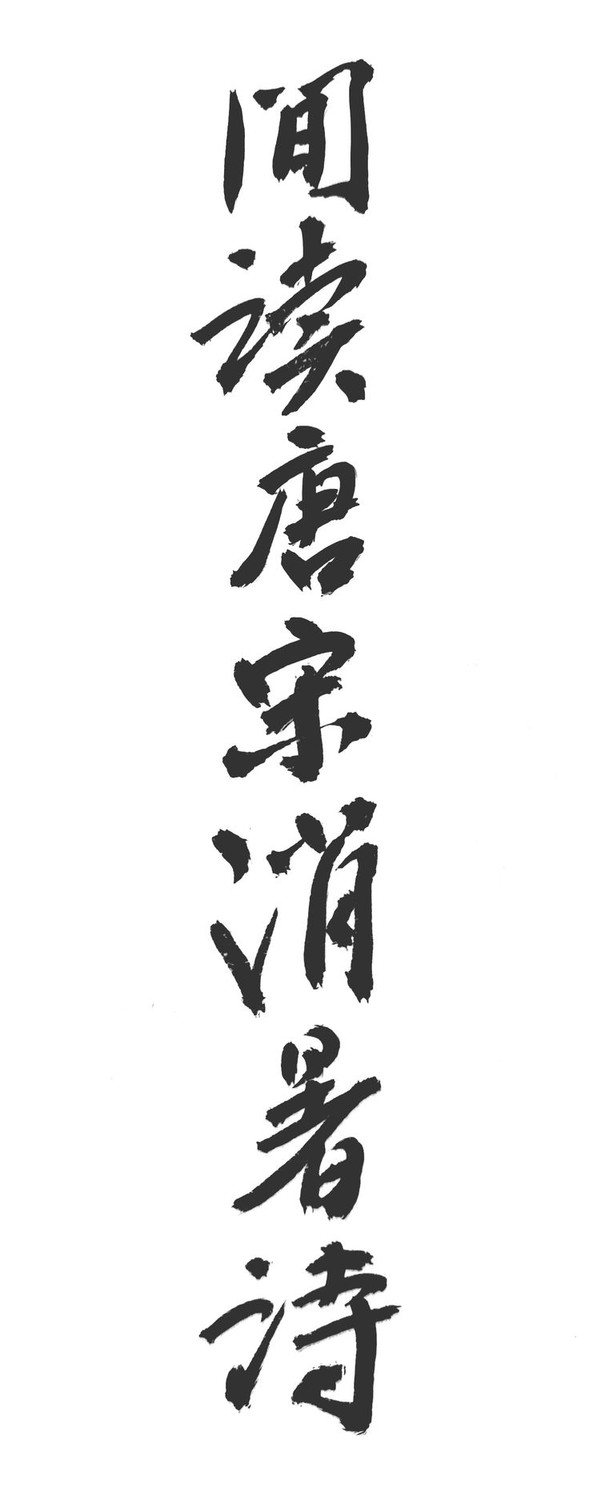 间读唐宋消暑诗